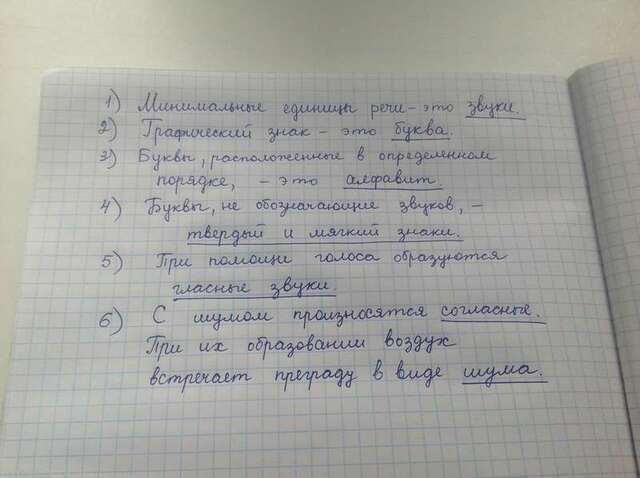 1) Минимальные единицы речи - это звуки.
2) Графический знак - это буква.
3) Буквы, расположенные в определенном
порядке, - это алфавит.
4) Буквы, не обозначающие звуков, -
твердый и мягкий знаки.
5) При помощи голоса образуются
гласные звуки.
6) С шумом произносятся согласные.
При их образовании воздух
встречает преграду в виде шума.